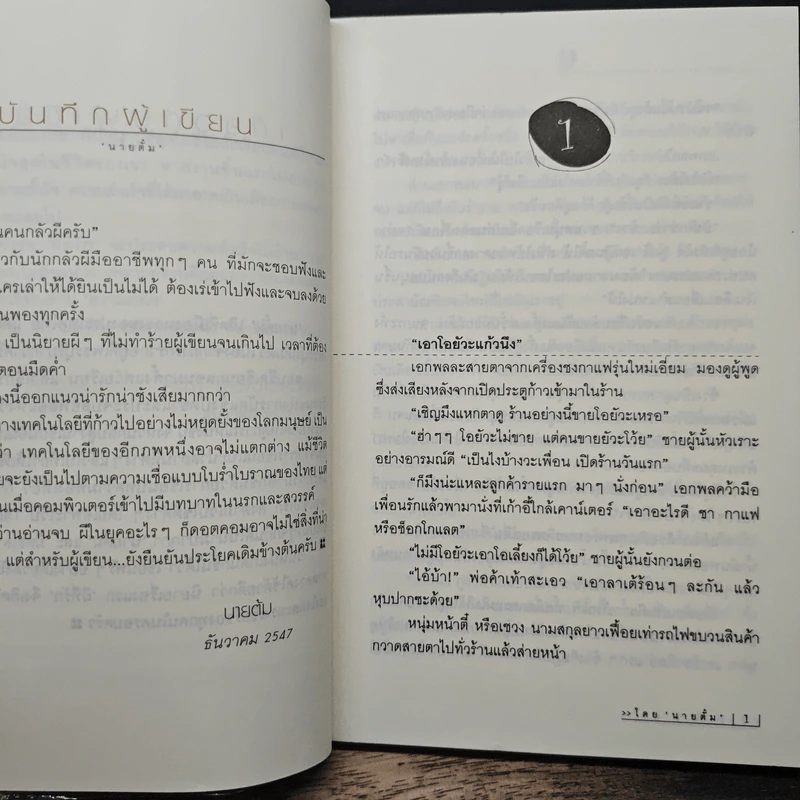 บันทึกผู้เขียน
'นายตั้ม'
นคนกลัวผีครับ"
วกับนักกลัวผีมืออาชีพทุกๆ คน ที่มักจะชอบฟังและ
ใครเล่าให้ได้ยินเป็นไม่ได้ ต้องเร่เข้าไปฟังและจบลงด้วย
นพองทุกครั้ง
เป็นนิยายผีๆ ที่ไม่ทำร้ายผู้เขียนจนเกินไป เวลาที่ต้อง
ตอนมืดค่ำ
องนี้ออกแนวน่ารักน่าชังเสียมากกว่า
างเทคโนโลยีที่ก้าวไปอย่างไม่หยุดยั้งของโลกมนุษย์ เป็น
ว่า เทคโนโลยีของอีกภพหนึ่งอาจไม่แตกต่าง แม้ชีวิต
ยจะยังเป็นไปตามความเชื่อแบบโบร่ำโบราณของไทย แต่
นเมื่อคอมพิวเตอร์เข้าไปมีบทบาทในนรกและสวรรค์
ว่านอ่านจบ ผีในยุคอะไรๆ ก็ดอตคอมอาจไม่ใช่สิ่งที่น่า
แต่สำหรับผู้เขียน...ยังยืนยันประโยคเดิมข้างต้นครับ
นายตั้ม
ธันวาคม 2547
1
"เอาโอยัวะแก้วนึง"
เอกพลละสายตาจากเครื่องชงกาแฟรุ่นใหม่เอี่ยม มองดูผู้พูด
ซึ่งส่งเสียงหลังจากเปิดประตูก้าวเข้ามาในร้าน
"เชิญมึงแหกตาดู ร้านอย่างนี้ขายโอยัวะเหรอ"
"ฮ่าๆๆ โอยัวะไม่ขาย แต่คนขายยัวะโว้ย" ชายผู้นั้นหัวเราะ
อย่างอารมณ์ดี "เป็นไงบ้างวะเพื่อน เปิดร้านวันแรก"
"ก็มึงน่ะแหละลูกค้ารายแรก มาๆ นั่งก่อน" เอกพลคว้ามือ
เพื่อนรักแล้วพามานั่งที่เก้าอี้ใกล้เคาน์เตอร์ "เอาอะไรดี ชา กาแฟ
หรือช็อกโกแลต"
"ไม่มีโอยัวะเอาโอเลี้ยงก็ได้โว้ย" ชายผู้นั้นยังกวนต่อ
"ไอ้บ้า!" พ่อค้าเท้าสะเอว "เอาลาเต้ร้อนๆ ละกัน แล้ว
หุบปากซะด้วย"
หนุ่มหน้าตี๋ หรือเชวง นามสกุลยาวเฟื้อยเท่ารถไฟขบวนสินค้า
กวาดสายตาไปทั่วร้านแล้วส่ายหน้า
>> โดย 'นายตั้ม' | 1 |